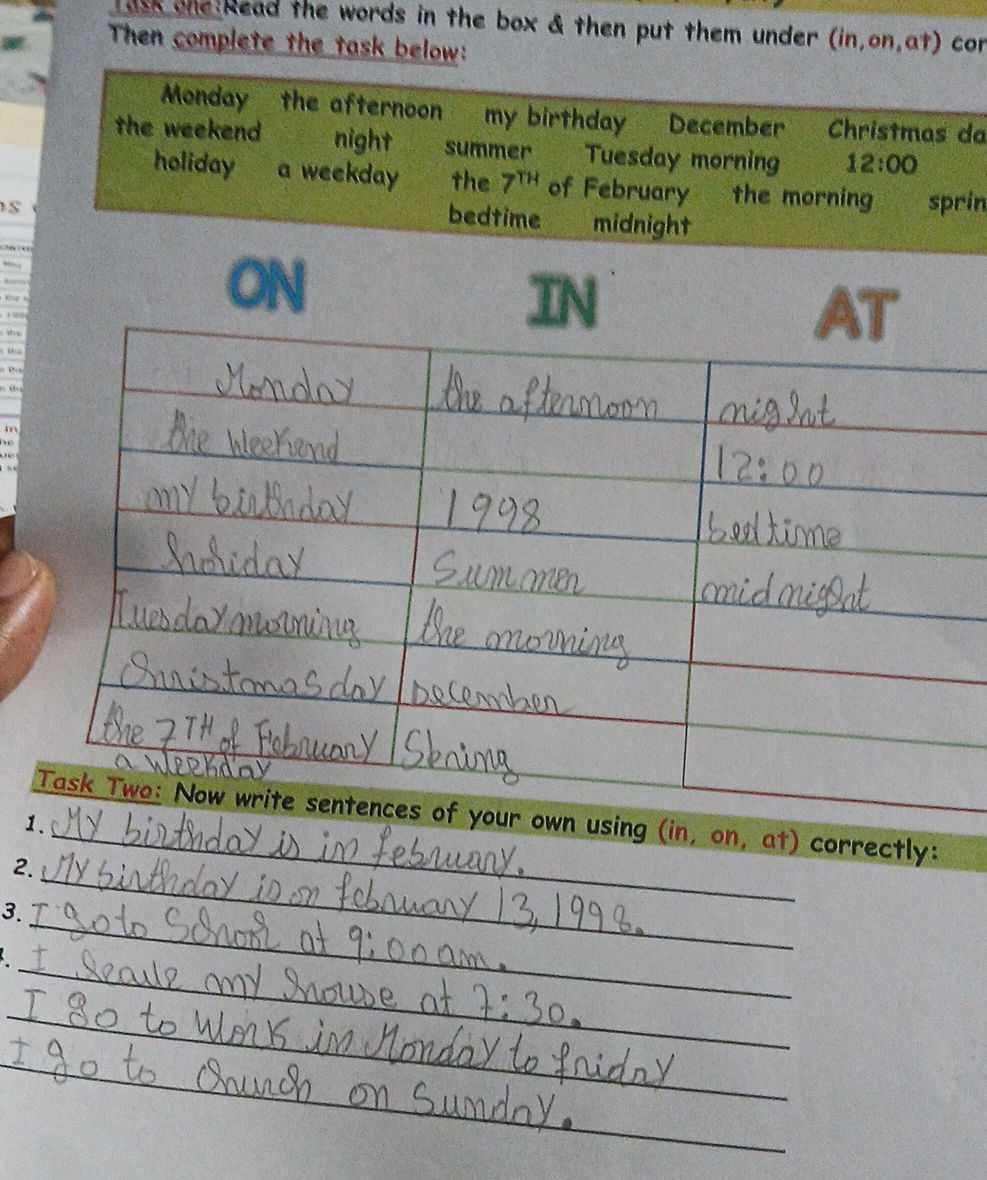 Task one: Read the words in the box & then put them under (in,on,at) cor
Then complete the task below:
Monday the afternoon my birthday December Christmas da
the weekend night summer Tuesday morning 12:00
holiday a weekday the 7TH of February the morning sprin
bedtime midnight
ON IN AT
Monday the afternoon night
the weekend 12:00
my birthday 1998 bedtime
holiday Summer midnight
Tuesday morning the morning
Christmas day December
the 7TH of February Spring
a weekday
Task Two: Now write sentences of your own using (in, on, at) correctly:
1. My birthday is in february.
2. My birthday is on february 13, 1998.
3. I go to School at 9:00am.
. I leave my house at 7:30.
I go to work in Monday to friday
I go to church on Sunday.